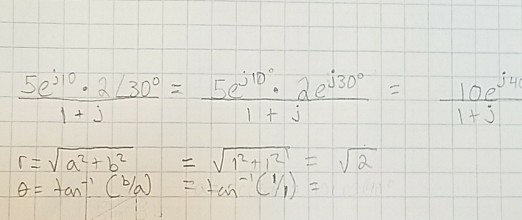 5e^j10 · 2∠30° / 1 + j = 5e^j10° · 2e^j30° / 1 + j = 10e^j40 / 1 + j
r = √a² + b² = √1² + 1² = √2
θ = tan⁻¹ (b/a) = tan⁻¹ (1/1) =